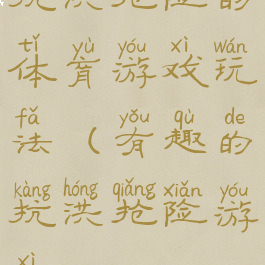 抗洪抢险的
tǐ yù yóu xì wán
体育游戏玩
fǎ yǒu qù de
法（有趣的
kàng hóng qiǎng xiǎn yóu
抗洪抢险游
xì